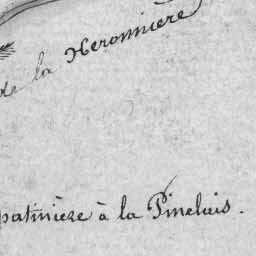 de la Heronnière
patinière à la Pinelais.